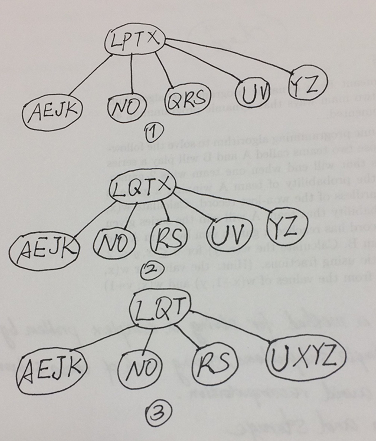 LPTX
AEJK NO QRS UV YZ
①
LQTX
AEJK NO RS UV YZ
②
LQT
AEJK NO RS UXYZ
③